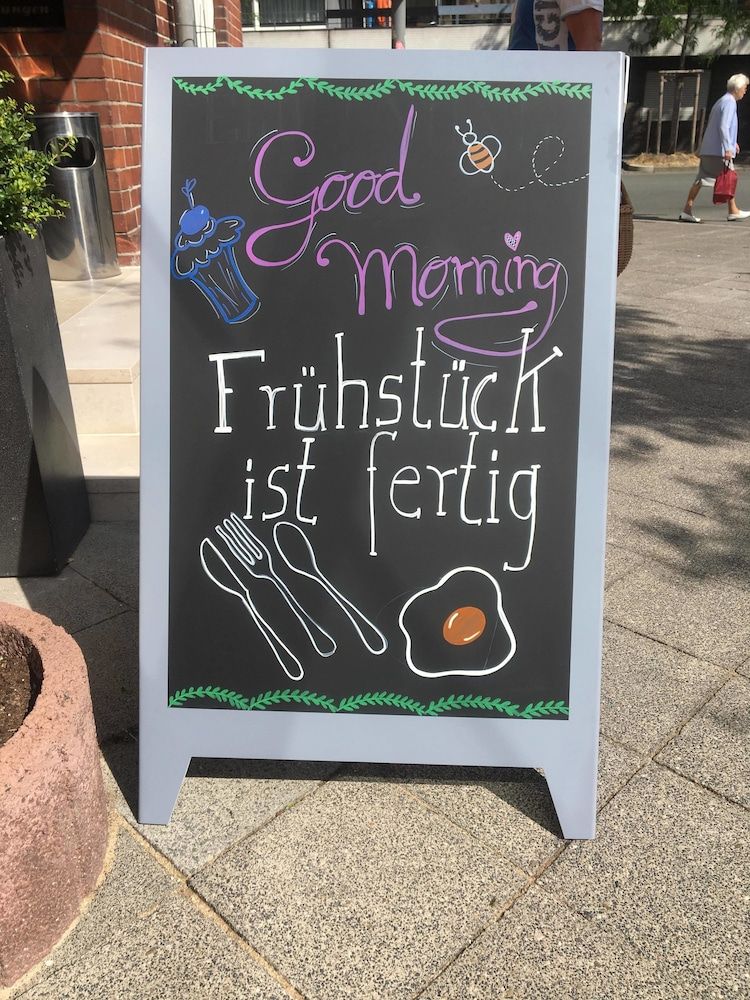 Good
Morning
Frühstück
ist fertig